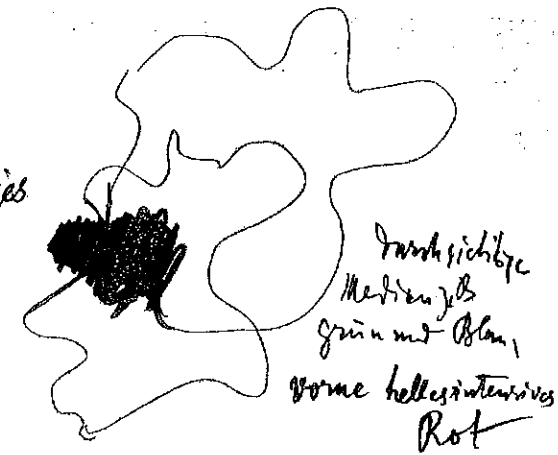 jes
Durchsichtige
Medien z.B.
grün und Blau,
vorne helles intensives
Rot